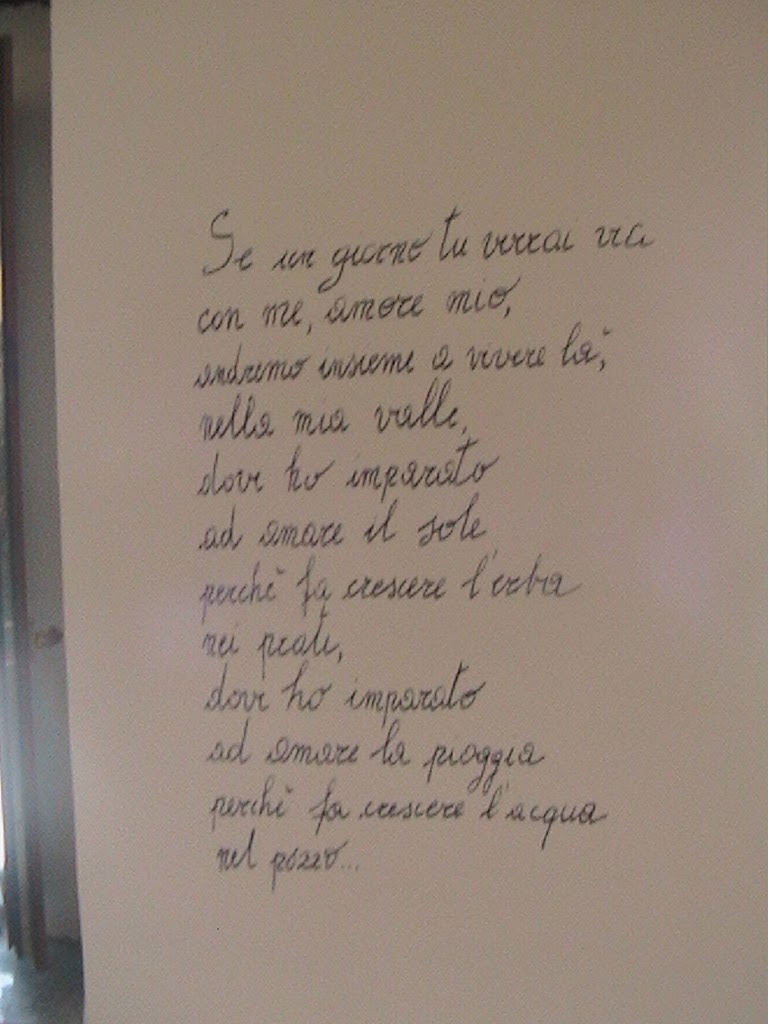 Se un giorno tu verrai via
con me, amore mio,
andremo insieme a vivere là,
nella mia valle,
dove ho imparato
ad amare il sole
perchè fa crescere l'erba
nei prati,
dove ho imparato
ad amare la pioggia
perchè fa crescere l'acqua
nel pozzo...